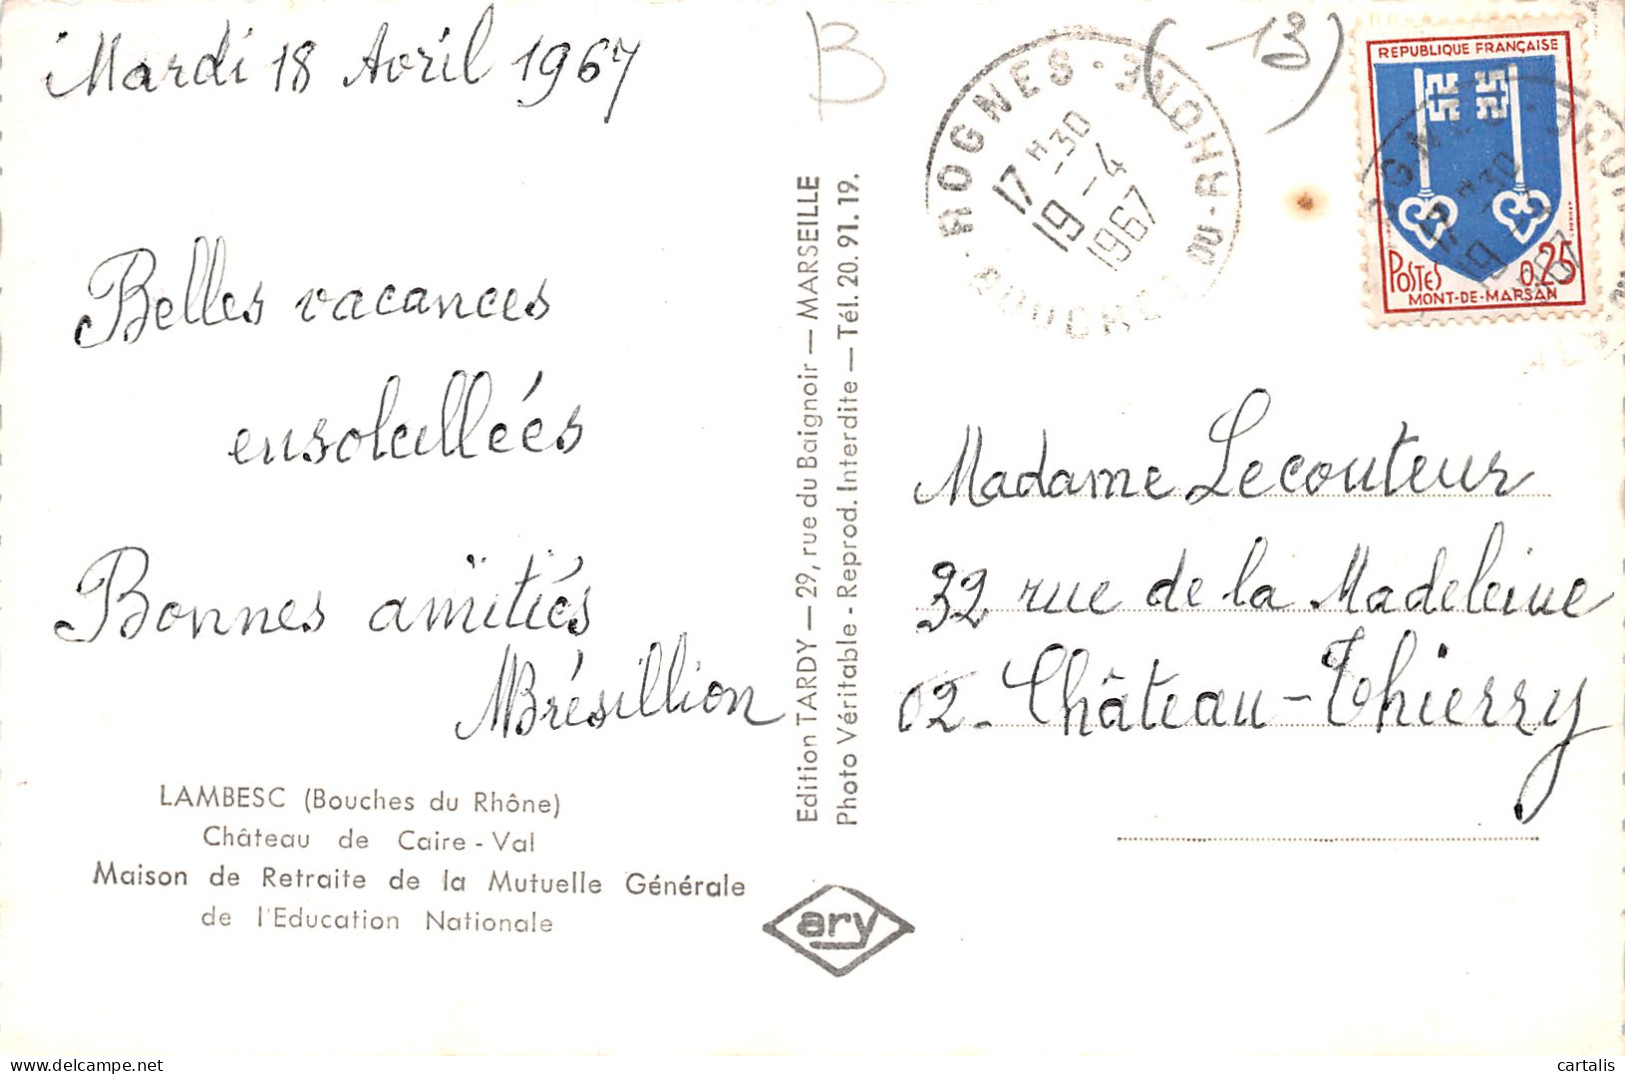 Mardi 18 Avril 1967
Belles vacances
ensoleillées
Bonnes amitiés
MBrésillion
LAMBESC (Bouches du Rhône)
Château de Caire - Val
Maison de Retraite de la Mutuelle Générale
de l'Education Nationale
Edition TARDY — 29, rue du Baignoir — MARSEILLE
Photo Véritable - Reprod. Interdite — Tél. 20. 91. 19.
ary
B
(13)
ROGNES · BOUCHES-DU-RHONE
17 H 30
19 - 4
1967
REPUBLIQUE FRANÇAISE
POSTES 0,25
MONT-DE-MARSAN
Madame Lecouteur
32 rue de la Madeleine
02 - Château-Thierry
cartalis